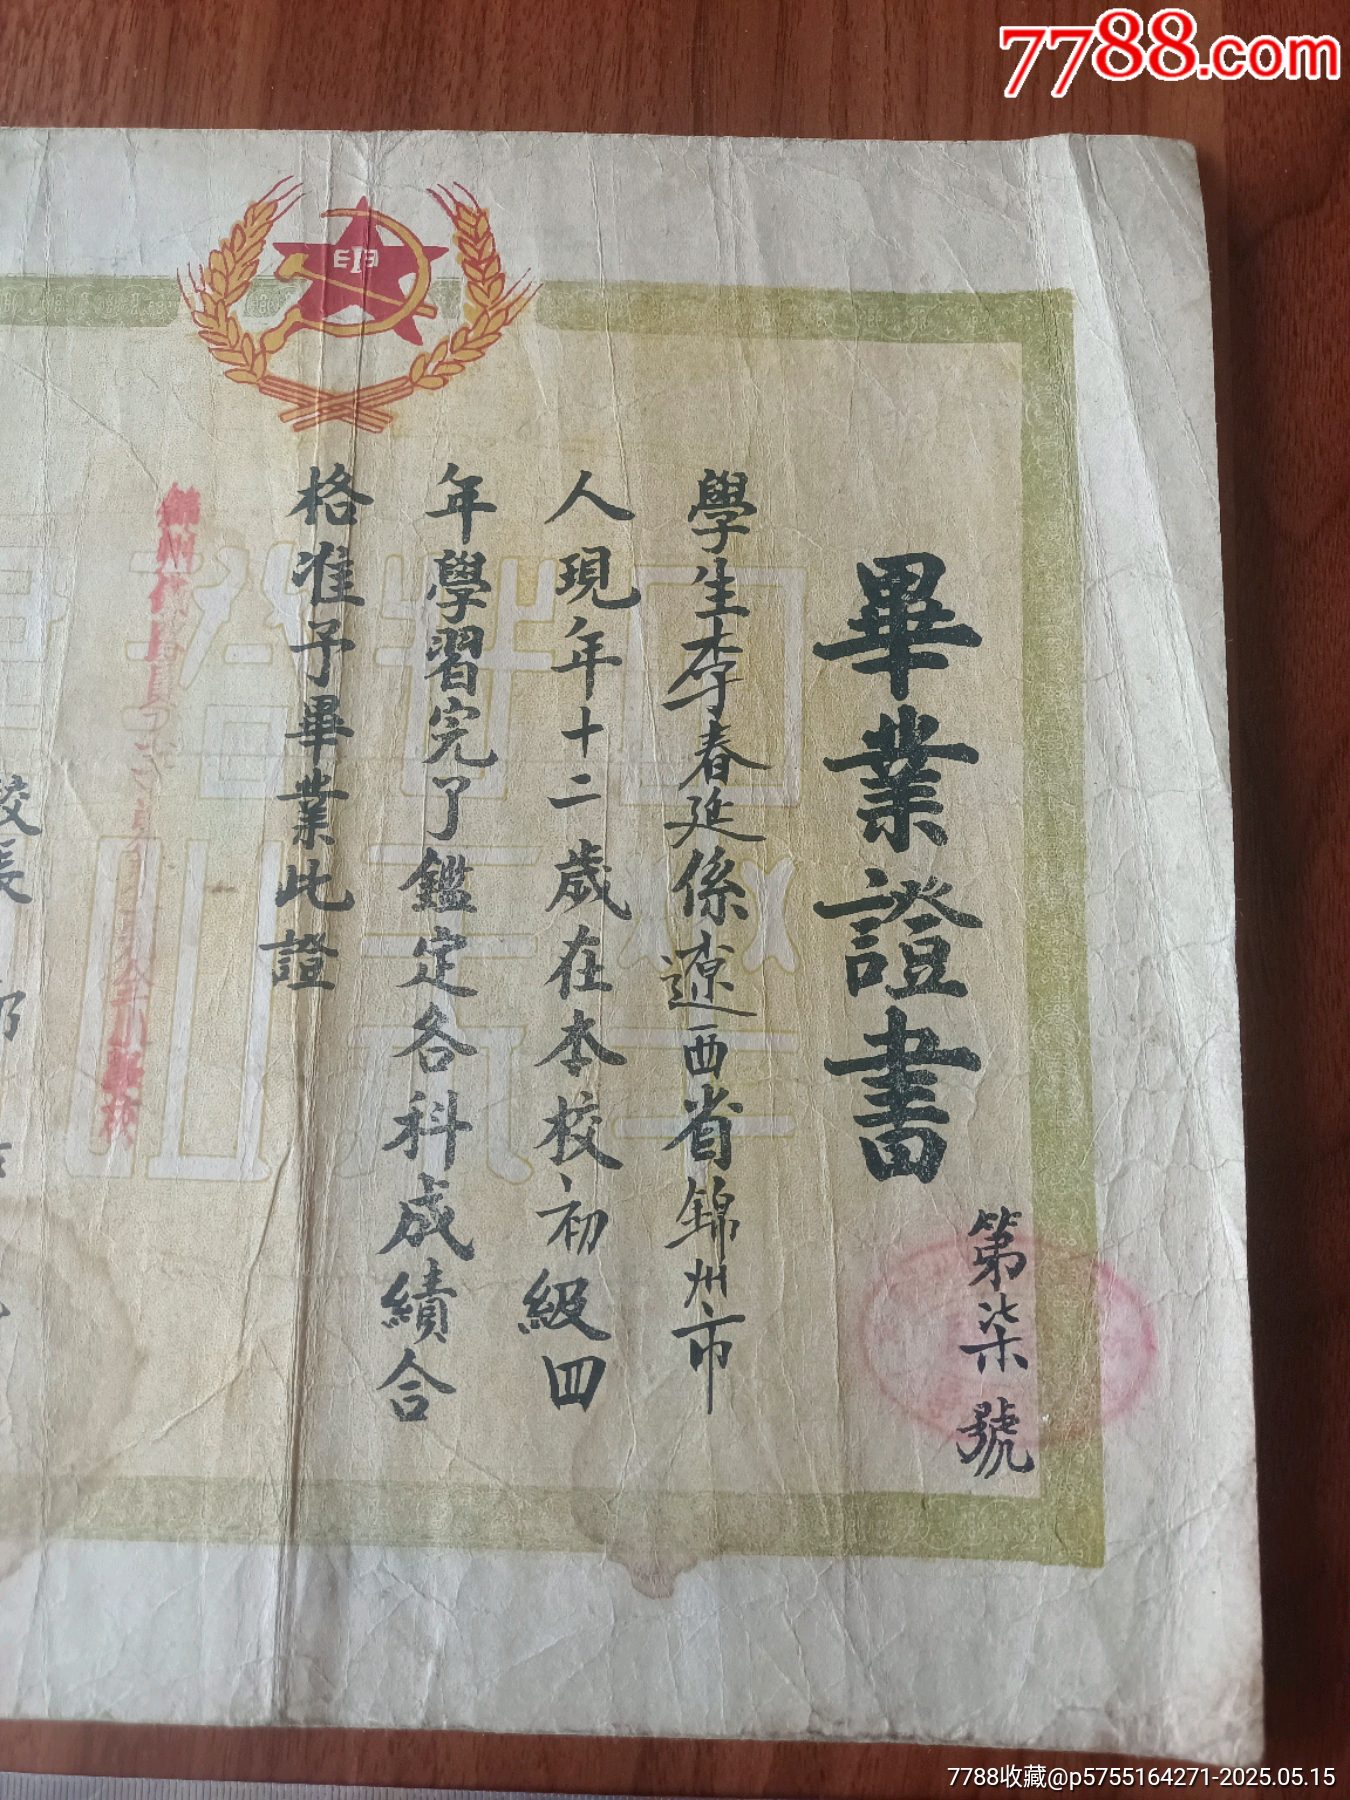 7788.com
畢業證書
第柒號
學生李春延係遼西省錦州市
人現年十二歲在本校初級四
年學習完了鑑定各科成績合
格准予畢業此證
校長
7788收藏@p5755164271-2025.05.15